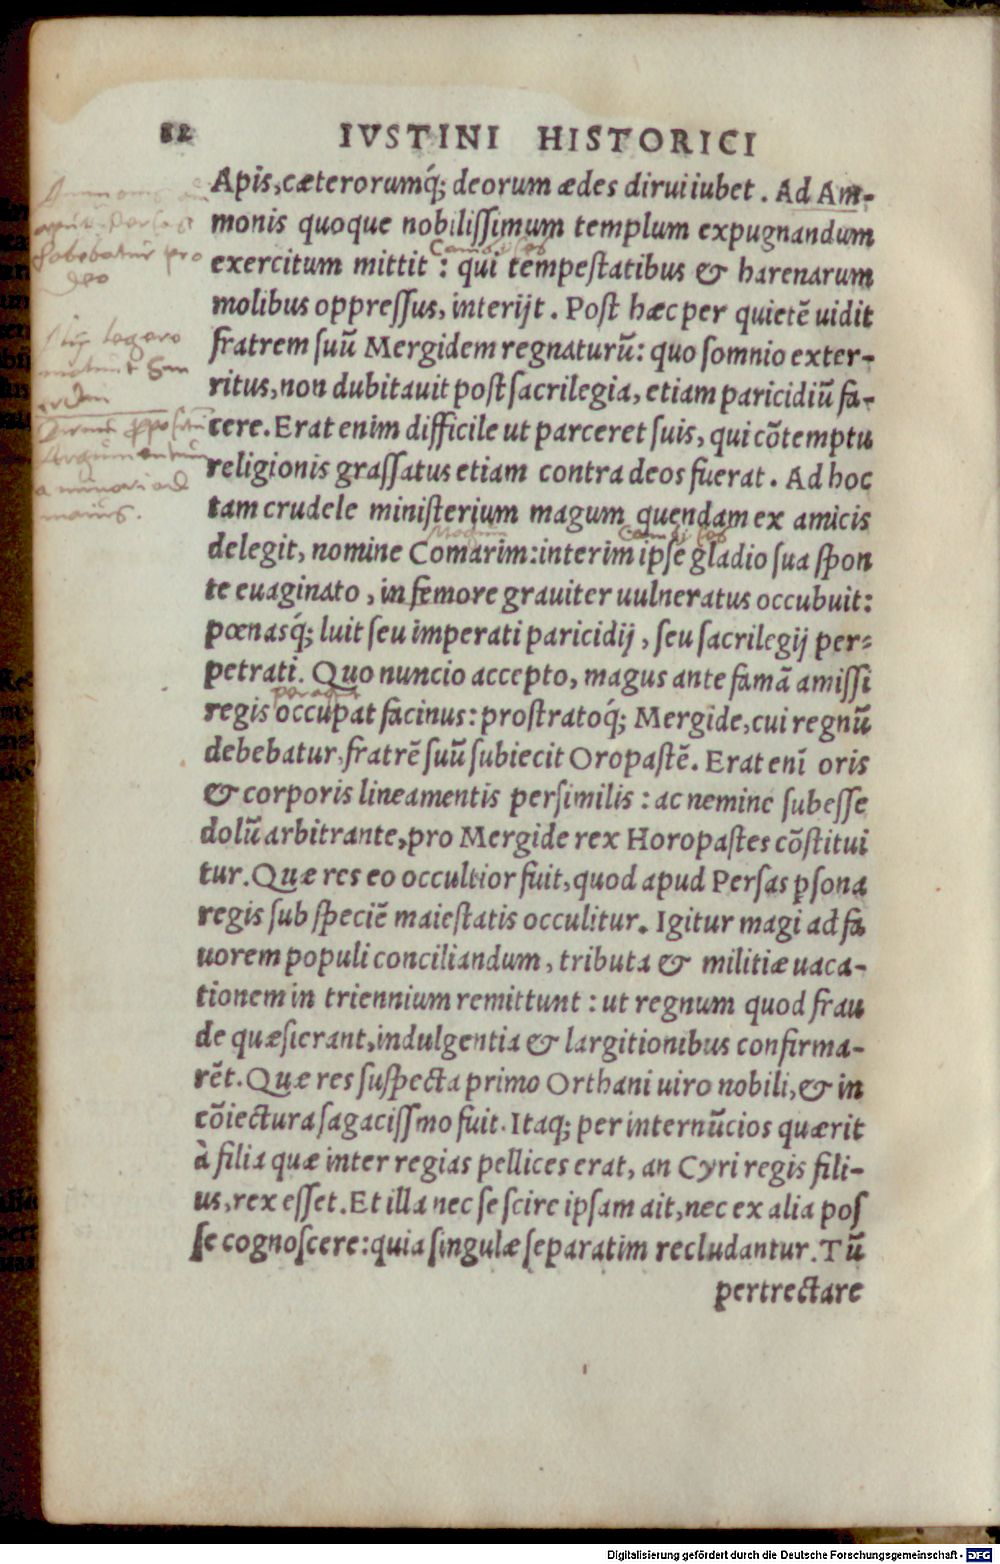 82 IVSTINI HISTORICI
Apis, cæterorumq́; deorum ædes dirui iubet. Ad Am-
monis quoque nobiliſſimum templum expugnandum
exercitum mittit: qui tempeſtatibus & harenarum
molibus oppreſſus, interijt. Poſt hæc per quietē uidit
fratrem ſuū Mergidem regnaturū: quo ſomnio exter-
ritus, non dubitauit poſt ſacrilegia, etiam paricidiū fa-
cere. Erat enim difficile ut parceret ſuis, qui cōtemptu
religionis graſſatus etiam contra deos fuerat. Ad hoc
tam crudele miniſterium magum quendam ex amicis
delegit, nomine Comarim: interim ipſe gladio ſua ſpon
te euaginato, in femore grauiter uulneratus occubuit:
pœnasq́; luit ſeu imperati paricidij, ſeu ſacrilegij per-
petrati. Quo nuncio accepto, magus ante famā amiſſi
regis occupat facinus: proſtratoq́; Mergide, cui regnū
debebatur, fratrē ſuū ſubiecit Oropaſtē. Erat enī oris
& corporis lineamentis perſimilis: ac nemine ſubeſſe
dolū arbitrante, pro Mergide rex Horopaſtes cōſtitui
tur. Quæ res eo occultior fuit, quod apud Perſas ꝑſona
regis ſub ſpeciē maieſtatis occulitur. Igitur magi ad fa
uorem populi conciliandum, tributa & militiæ uaca-
tionem in triennium remittunt: ut regnum quod frau
de quæſierant, indulgentia & largitionibus confirma-
rēt. Quæ res ſuſpecta primo Orthani uiro nobili, & in
cōiectura ſagaciſſmo fuit. Itaq; per internūcios quærit
à filia quæ inter regias pellices erat, an Cyri regis fili-
us, rex eſſet. Et illa nec ſe ſcire ipſam ait, nec ex alia poſ
ſe cognoſcere: quia ſingulæ ſeparatim recludantur. Tū
pertrectare
habebatur pro
deo
legere
argumentum
a minori ad
maius.
Magum
Digitalisierung gefördert durch die Deutsche Forschungsgemeinschaft - DFG